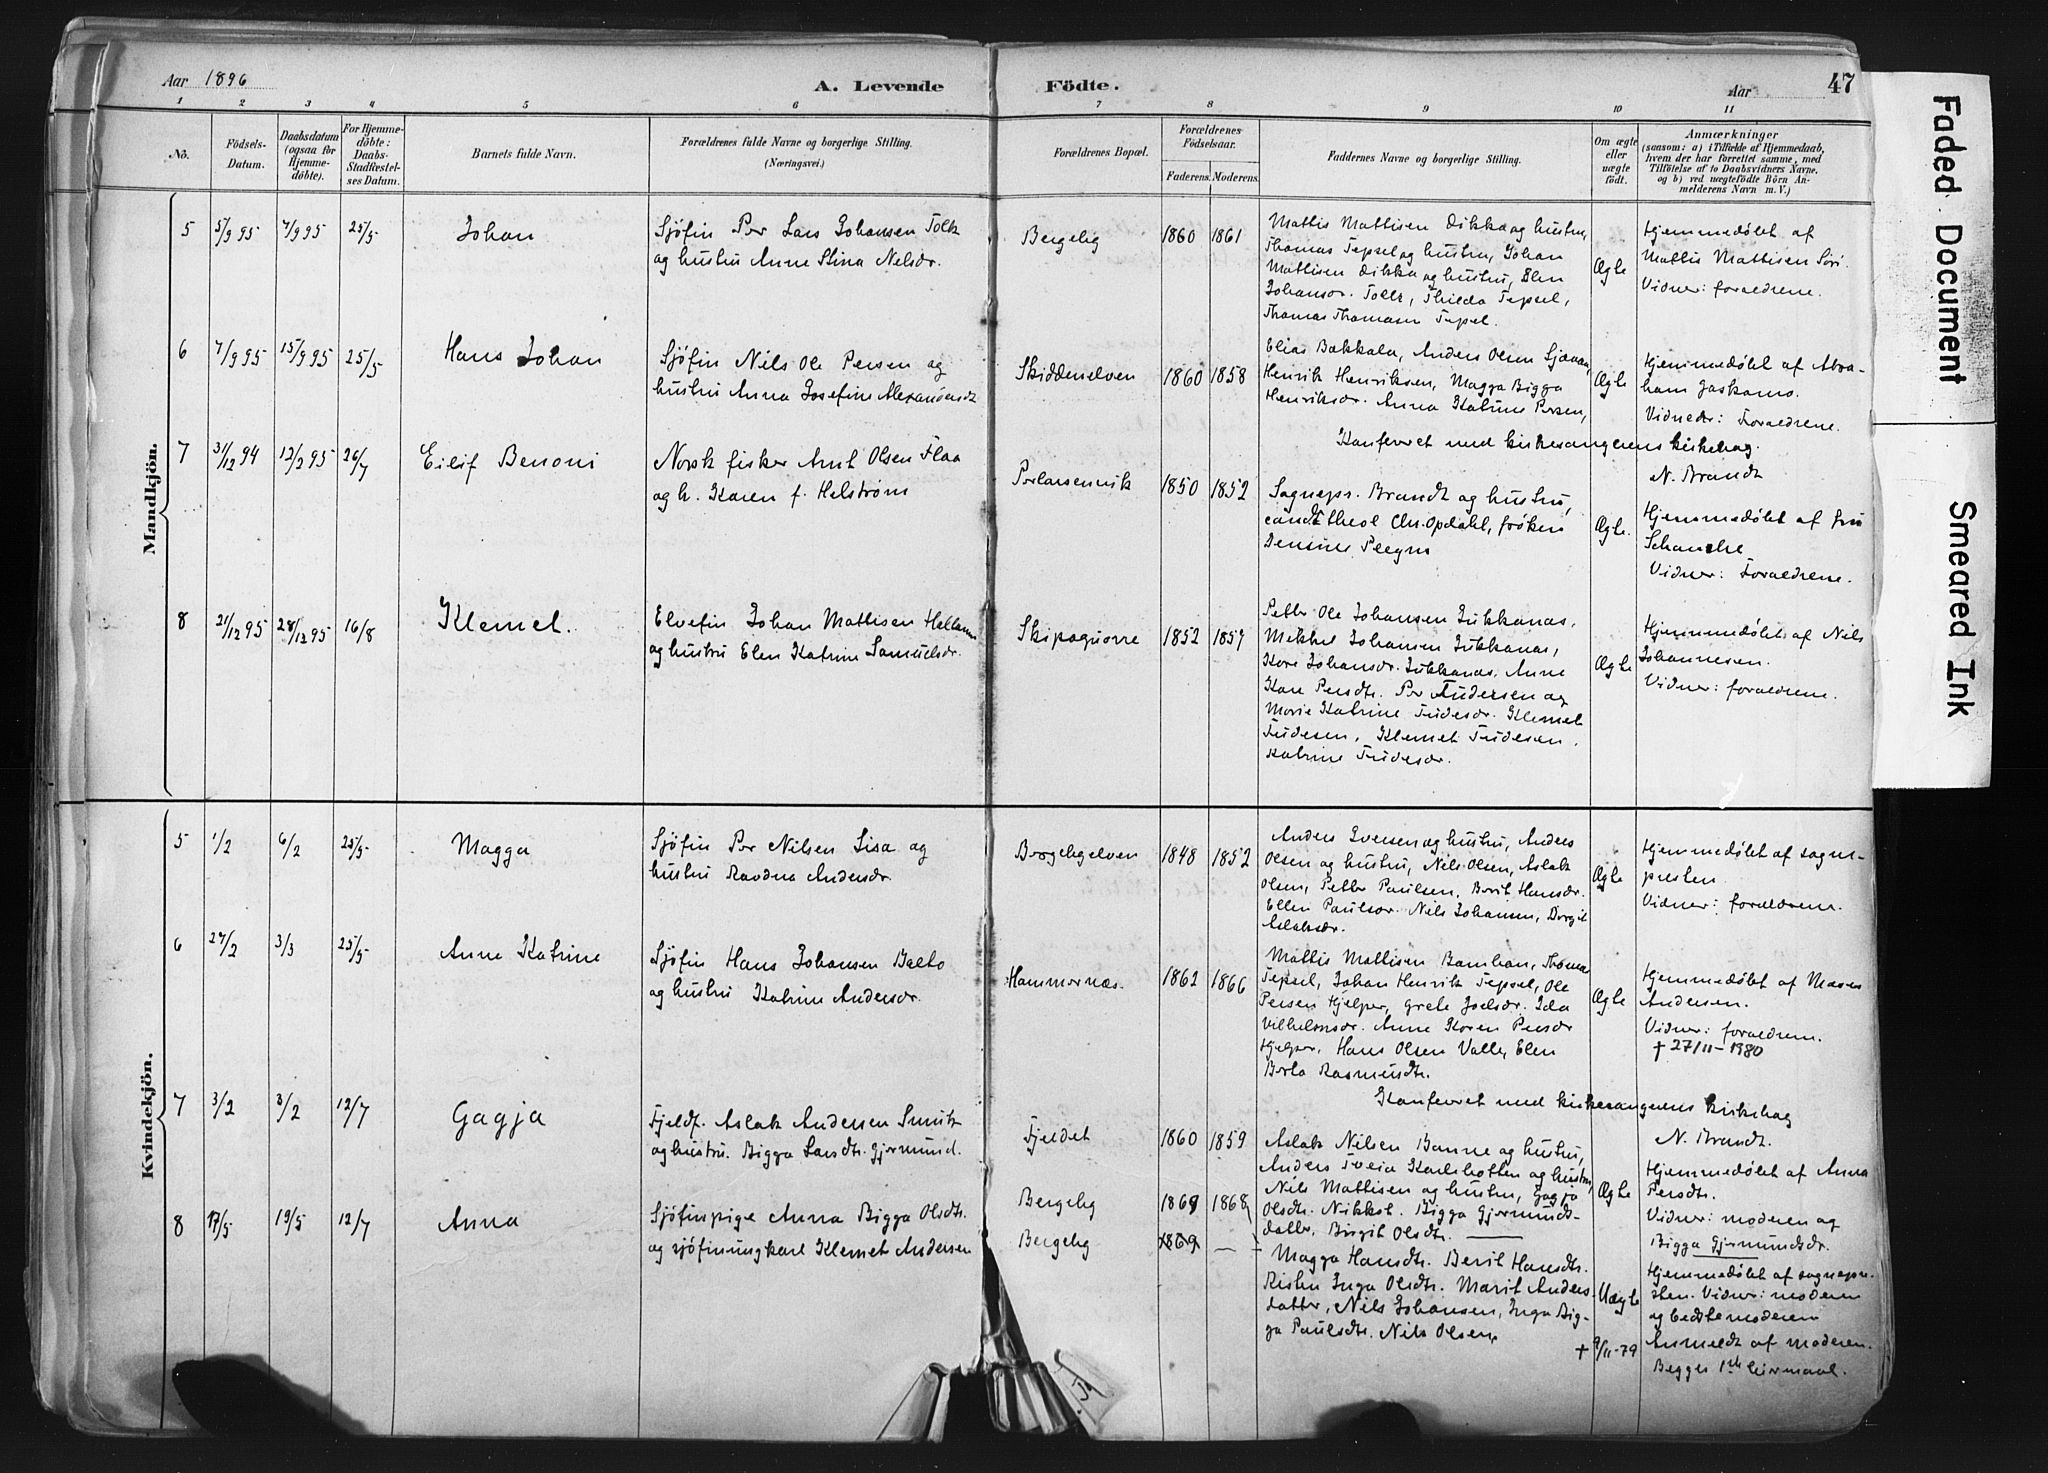 Aar 1896
A. Levende
Födte.
Aar
47
1 2 3 4 5 6 7 8 9 10 11
No.
Födsels-Datum.
Daabsdatum (ogsaa for Hjemme-döbte).
For Hjemme-döbte: Daabs-Stadfæstel-ses Datum.
Barnets fulde Navn.
Forældrenes fulde Navne og borgerlige Stilling.
(Næringsvei.)
Forældrenes Bopæl.
Forældrenes Födselsaar.
Faderens. Moderens.
Faddernes Navne og borgerlige Stilling.
Om ægte eller uægte födt.
Anmærkninger
(saasom: a) i Tilfælde af Hjemmedaab,
hvem der har forrettet samme, med
Tilföielse af to Daabsvidners Navne,
og b) ved uægtefödte Börn An-
melderens Navn m. V.)
Mandkjön.
5 5/9 95 7/9 95 25/5 Johan
Sjöfin Per Lars Johansen Tolk
og hustru Anne Stina Nelsdr.
Bergeby 1860 1861
Mattis Mattisen Dikka og hustru,
Thomas Tepsel og hustru, Johan
Mattisen Dikka og hustru, Elen
Johansdr. Tolk, Thilda Tepsel,
Thomas Thomasen Tepsel.
Ægte
Hjemmedøbt af
Mattis Mattisen Siri.
Vidner: forældrene.
6 7/9 95 15/9 95 25/5 Hans Johan
Sjöfin Nils Ole Persen og
hustru Anna Josefine Alexandersdr
Skiddenelven 1860 1858
Elias Bakkala, Anders Olsen Sjaavan,
Henrik Henriksen, Magga Bigga
Henriksdr. Anna Katrine Persen,
Ægte
Hjemmedøbt af Abra-
ham Gaskamo.
Vidner: Forældrene.
Konfereret med kirkesangerens kirkebog.
N. Brandt
7 31/12 94 12/2 95 26/7 Eilif Benoni
Norsk fisker Arnt Olsen Flaa
og h. Karen f. Helstrøm
Perlarsenvik 1850 1852
Sognepr. Brandt og hustru,
cand. theol Chr. Opdahl, frøken
Ægte.
Hjemmedøbt af fru
Schanche
Vidner: Forældrene.
8 21/12 95 28/12 95 16/8 Klemet.
Elvefin Johan Mattisen Hellman
og hustru Elen Katrine Samuelsdr.
Skipagurre 1852 1857
Petter Ole Johansen Jukkanas,
Mekkel Johansen Jukkanas,
Kare Johansdr. Jukkanas, Anne
Kare Persdtr. Per Fudersen og
Marie Katrine Fudesdr. Klemet
Fudesen, Klemet Fudesen,
Katrine Fudesdr.
Ægte
Hjemmedøbt af Nils
Johannesen.
Vidner: forældrene.
Kvindekjön.
5 1/2 6/2 25/5 Magga
Sjöfin Per Nilsen Sisa og
hustru Ravdna Andersdr.
Bergebyelven 1848 1852
Anders Iversen og hustru, Anders
Olsen og hustru, Nils Olsen, Aslak
Olsen, Petter Paulsen, Berit Hansdr.
Ellen Paulsdr. Nils Johansen, Dorgit
Aslaksdr.
Ægte
Hjemmedøbt af sogne-
presten.
Vidner: forældrene.
6 27/2 3/3 25/5 Anne Katrine
Sjöfin Hans Johansen Balto
og hustru Katrine Andersdr.
Hammernæs. 1862 1866
Mattis Mattisen Banhan, Thomas
Tepsel, Johan Henrik Tepsel, Ole
Persen Hjelper, Grete Joelsdr. Ida
Vilhelmsdr. Anne Karen Persdr
Hjelper, Hans Olsen Valle, Elen
Berta Rasmusdtr.
Ægte
Hjemmedøbt af Moses
Andersen.
Vidner: forældrene.
† 27/11-1980
Konfereret med kirkesangerens kirkebog
N. Brandt.
7 3/2 3/2 12/7 Gagja
Fjeldf. Aslak Andersen Smuk
og hustru. Bigga Larsdtr. Gjermund.
Fjeldet 1860 1859
Aslak Nilsen Banne og hustru,
Anders Tveia Karlebotten og hustru,
Nils Mattisen og hustru, Gagja
Olsdtr. Nikkol. Bigga Gjermunds-
datter, Birgit Olsdtr.
Ægte
Hjemmedøbt af Anna
Persdtr.
Vidner: moderen og
Bigga Gjermundsdr.
8 17/5 19/5 12/7 Anna
Sjöfinpige Anna Bigga Olsdtr.
og sjöfinungkarl Klemet Andersen
Bergeby 1869 1868
Bergeby 1869 —
Magga Hansdtr. Berit Hansdtr.
Risten Inga Olsdtr. Marit Anders-
datter, Nils Johansen, Inga Big-
ga Paulsdtr. Nils Olsen,
Uægte
Hjemmedøbt af sognepre-
sten. Vidner: moderen
og bedstemoderen
† 9/11-79 Anmeldt af moderen.
Begges 1ste leiermaal.
Faded Document
Smeared Ink